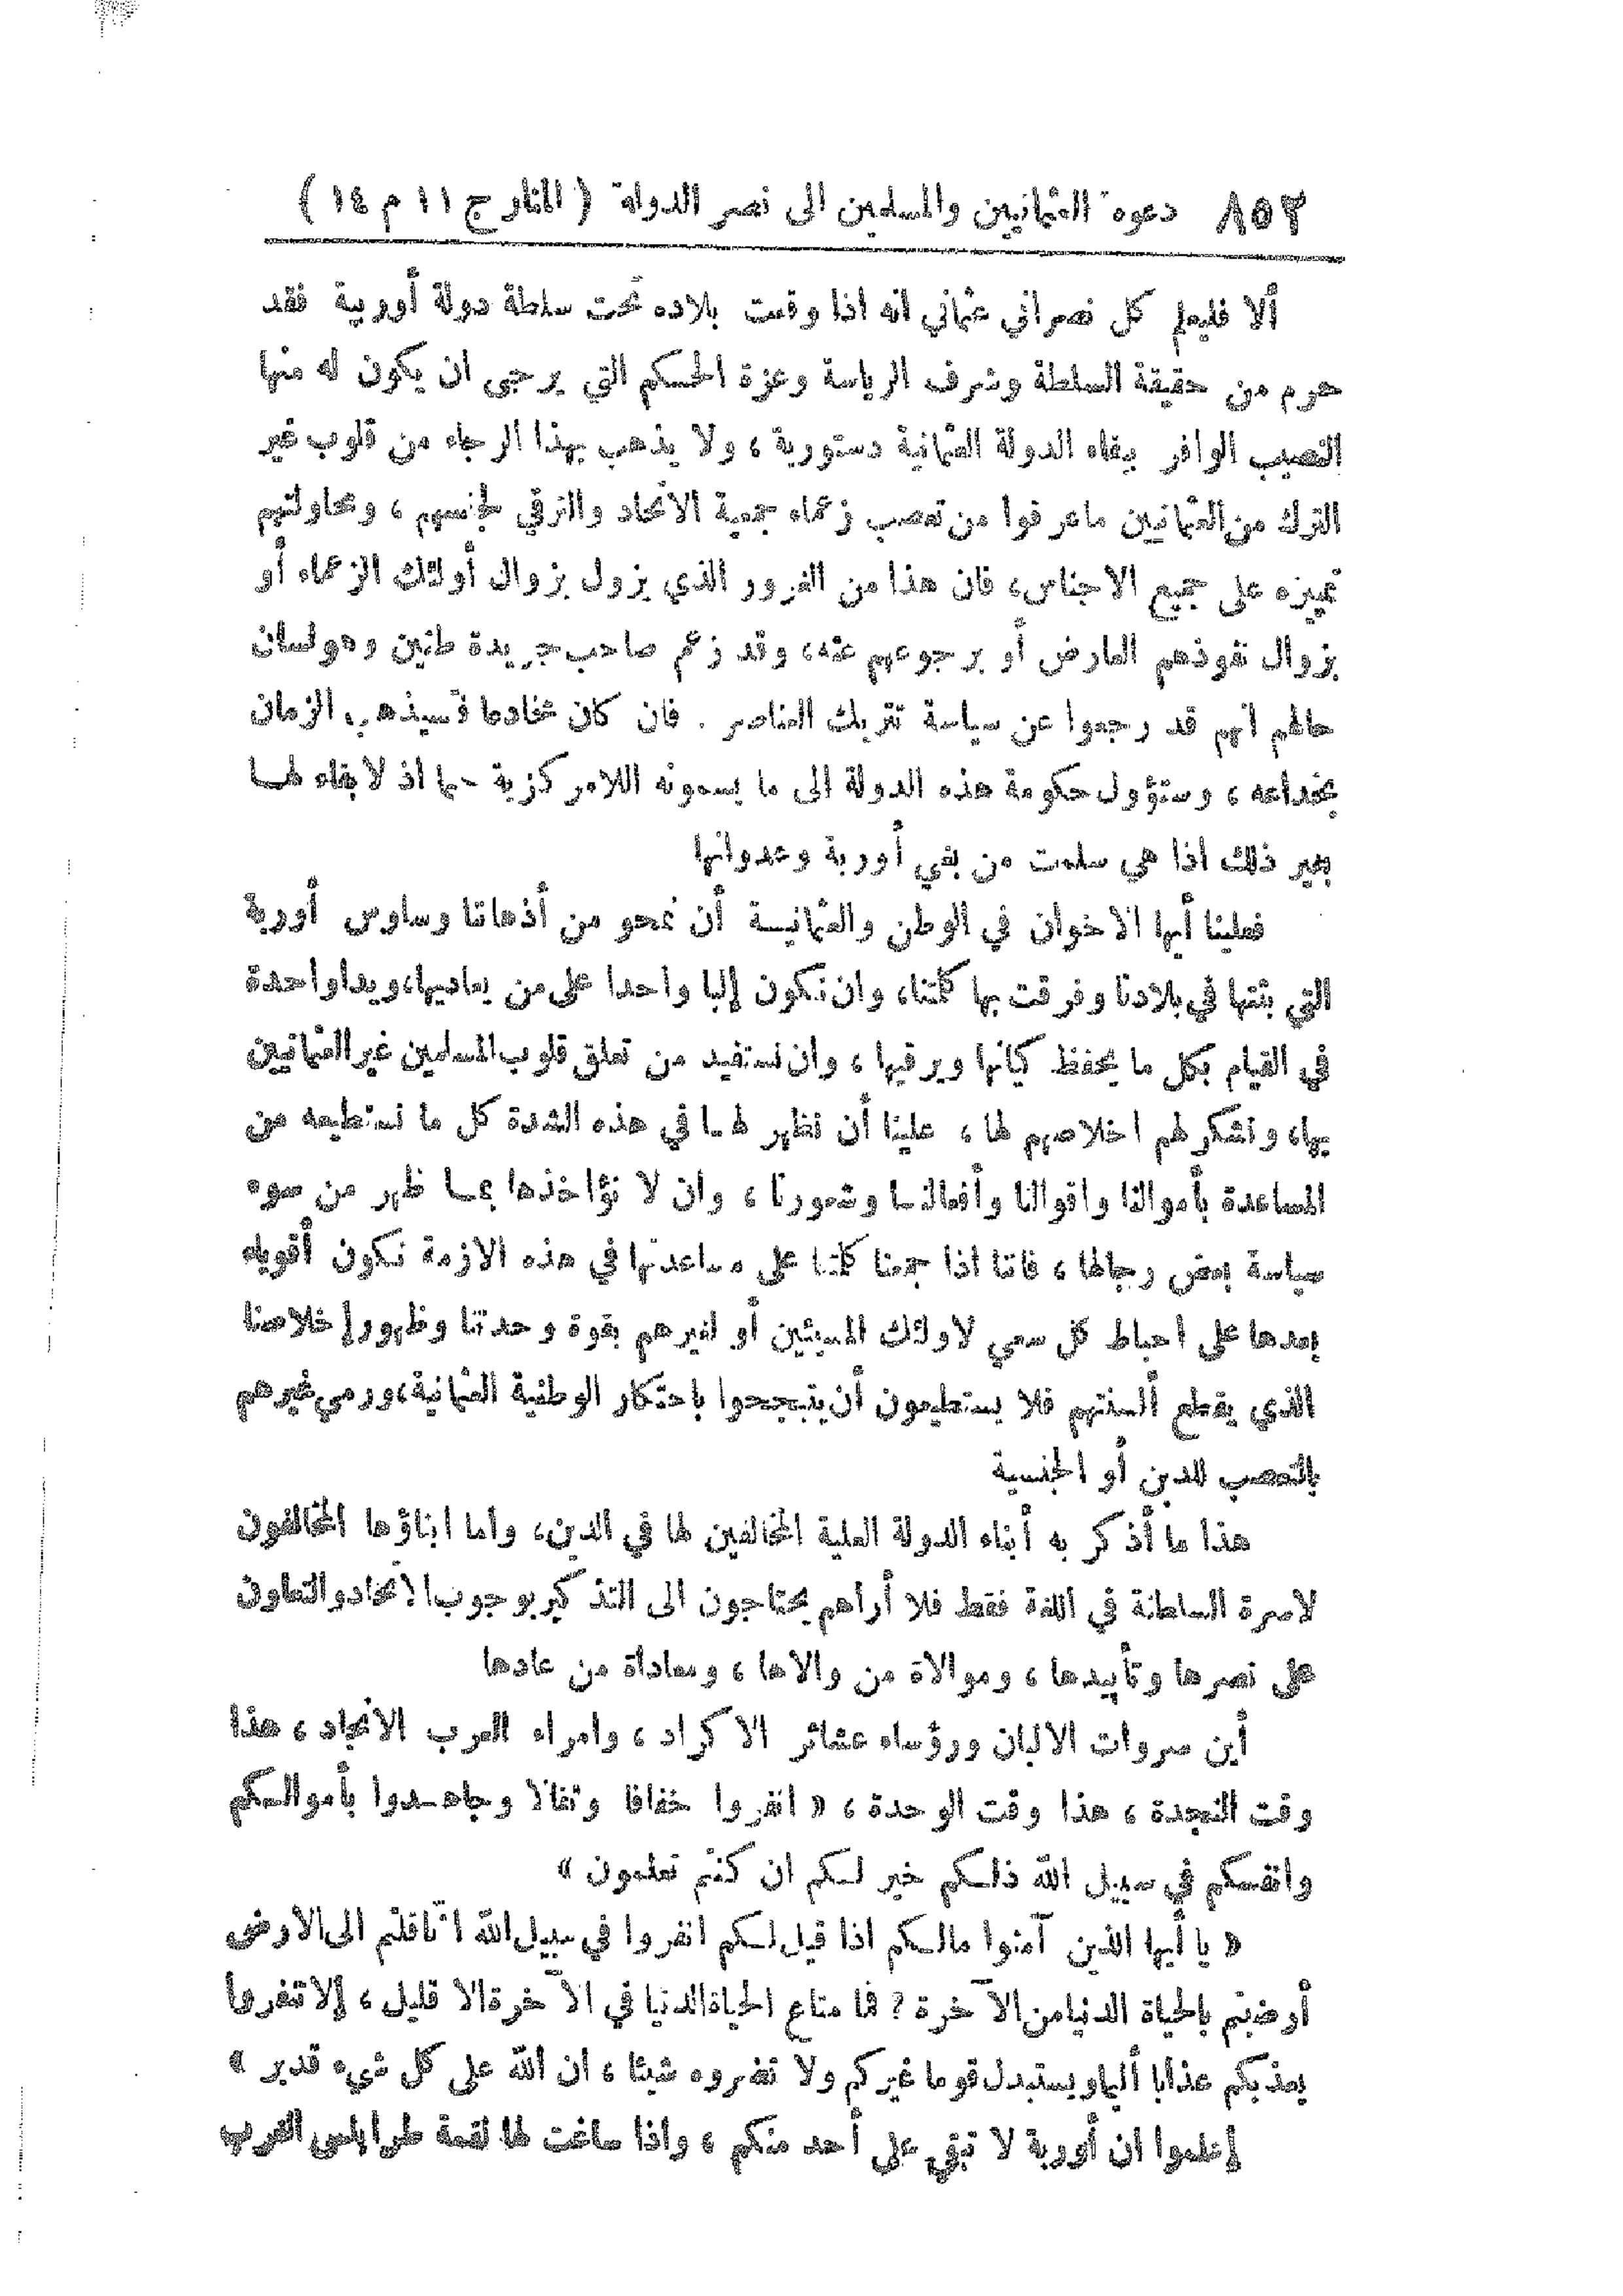 ٨٥٢ دعوة العثمانيين والمسلمين الى نصر الدولة ( المنار ج ١١ م ١٤ )
ألا فليعلم كل نصراني عثماني انه اذا وقعت بلاده تحت سلطة دولة أوربية فقد
حرم من حقيقة السلطة وشرف الرياسة وعزة الحكم التي يرجى ان يكون له منها
النصيب الوافر ببقاء الدولة العثمانية دستورية ، ولا يذهب بهذا الرجاء من قلوب غير
الترك من العثمانيين ماعرفوا من تعصب زعماء جمعية الاتحاد والترقي لجنسهم ، ومحاولتهم
تمييزه على جميع الاجناس، فان هذا من الغرور الذي يزول بزوال أولئك الزعماء أو
بزوال نفوذهم العارض أو برجوعهم عنه، وقد زعم صاحب جريدة طنين وهو لسان
حالهم انهم قد رجعوا عن سياسة تتريك العناصر . فان كان مخادعا فسيذهب الزمان
بخداعه ، وستؤول حكومة هذه الدولة الى ما يسمونه اللامركزية حتما اذ لا بقاء لها
بغير ذلك اذا هي سلمت من بغي أوربة وعدوانها
فعلينا أيها الاخوان في الوطن والعثمانية أن نمحو من أذهاننا وساوس أوربة
التي بثتها في بلادنا وفرقت بها كلمتنا، وان نكون إلبا واحدا على من يعاديها، ويدا واحدة
في القيام بكل ما يحفظ كيانها ويرقيها ، وان نستفيد من تعلق قلوب المسلمين غير العثمانيين
بها، ونشكر لهم اخلاصهم لها ، علينا أن نظهر لها في هذه الشدة كل ما نستطيعه من
المساعدة بأموالنا واقوالنا وأفعالنا وشعورنا ، وان لا نؤاخذها بما ظهر من سوء
سياسة بعض رجالها ، فاننا اذا جمعنا كلمتنا على مساعدتها في هذه الازمة نكون أقوياء
بعدها على احباط كل سعي لاولئك المسيئين أو لغيرهم بقوة وحدتنا وظهور إخلاصنا
الذي يقطع ألسنتهم فلا يستطيعون أن يتبجحوا باحتكار الوطنية العثمانية، ورمي غيرهم
بالتعصب للدين أو الجنسية
هذا ما أذكر به أبناء الدولة العلية المخالفين لها في الدين، واما ابناؤها المخالفون
لاسرة السلطنة في اللغة فقط فلا أراهم يحتاجون الى التذكير بوجوب الاتحاد والتعاون
على نصرها وتأييدها ، وموالاة من والاها ، ومعاداة من عادها
أين سروات الالبان ورؤساء عشائر الاكراد ، وامراء العرب الانجاد ، هذا
وقت النجدة ، هذا وقت الوحدة ، « انفروا خفافا وثقالا وجاهدوا بأموالكم
وانفسكم في سبيل الله ذلكم خير لكم ان كنتم تعلمون »
« يا أيها الذين آمنوا مالكم اذا قيل لكم انفروا في سبيل الله اثاقلتم الى الارض
أرضيتم بالحياة الدنيا من الآخرة ? فما متاع الحياة الدنيا في الآخرة الا قليل ، إلا تنفروا
يعذبكم عذابا أليما ويستبدل قوما غيركم ولا تضروه شيئا ، ان الله على كل شيء قدير »
إعلموا ان أوربة لا تبقي على أحد منكم ، واذا ساغت لها لقمة طرابلس الغرب